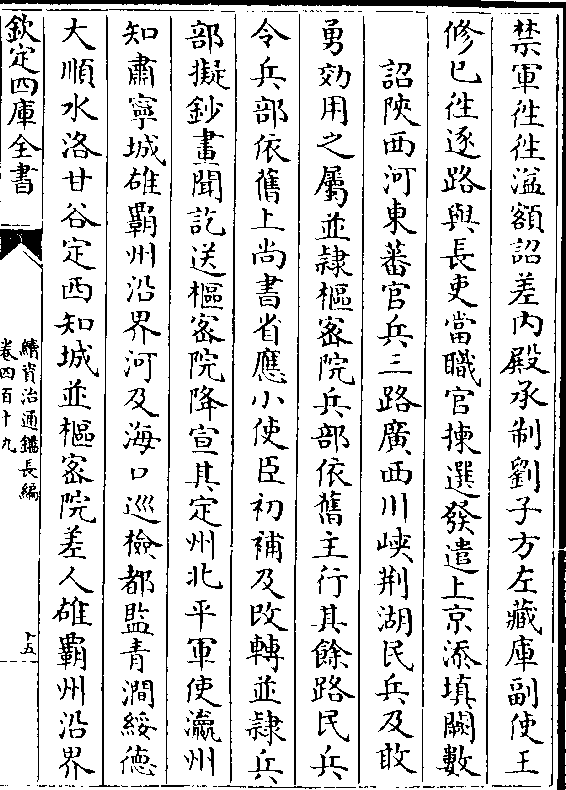 禁軍徃徃溢額詔差内殿承制劉子方左藏庫副使王
修已徃逐路與長吏當職官揀選發遣上京添填闕數
詔陜西河東蕃官兵三路廣西川峽荆湖民兵及敢
勇効用之屬並隸樞宻院兵部依舊主行其餘路民兵
令兵部依舊上尚書省應小使臣初補及改轉並隸兵
部擬鈔畫聞訖送樞宻院降宣其定州北平軍使瀛州
知肅寧城雄霸州沿界河及海口巡檢都監青澗綏德
大順水洛甘谷定西知城並樞宻院差人雄霸州沿界
欽定四庫全書
續資治通鑑長編
卷四百十九
十五